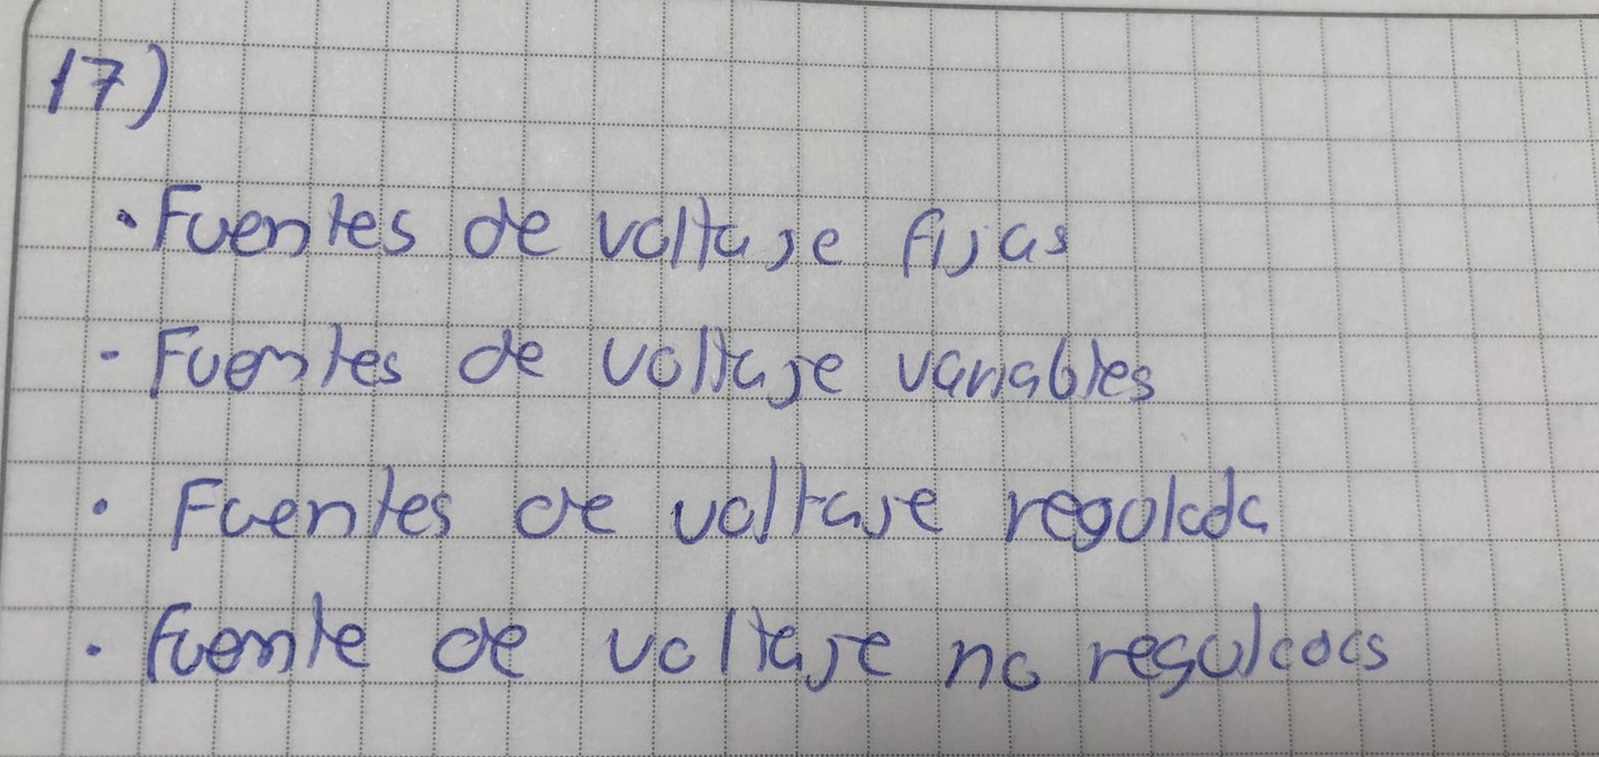 17)
· Fuentes de voltaje fijas
- Fuentes de voltaje variables
· Fuentes de voltaje regulada
· fuente de voltaje no reguladas